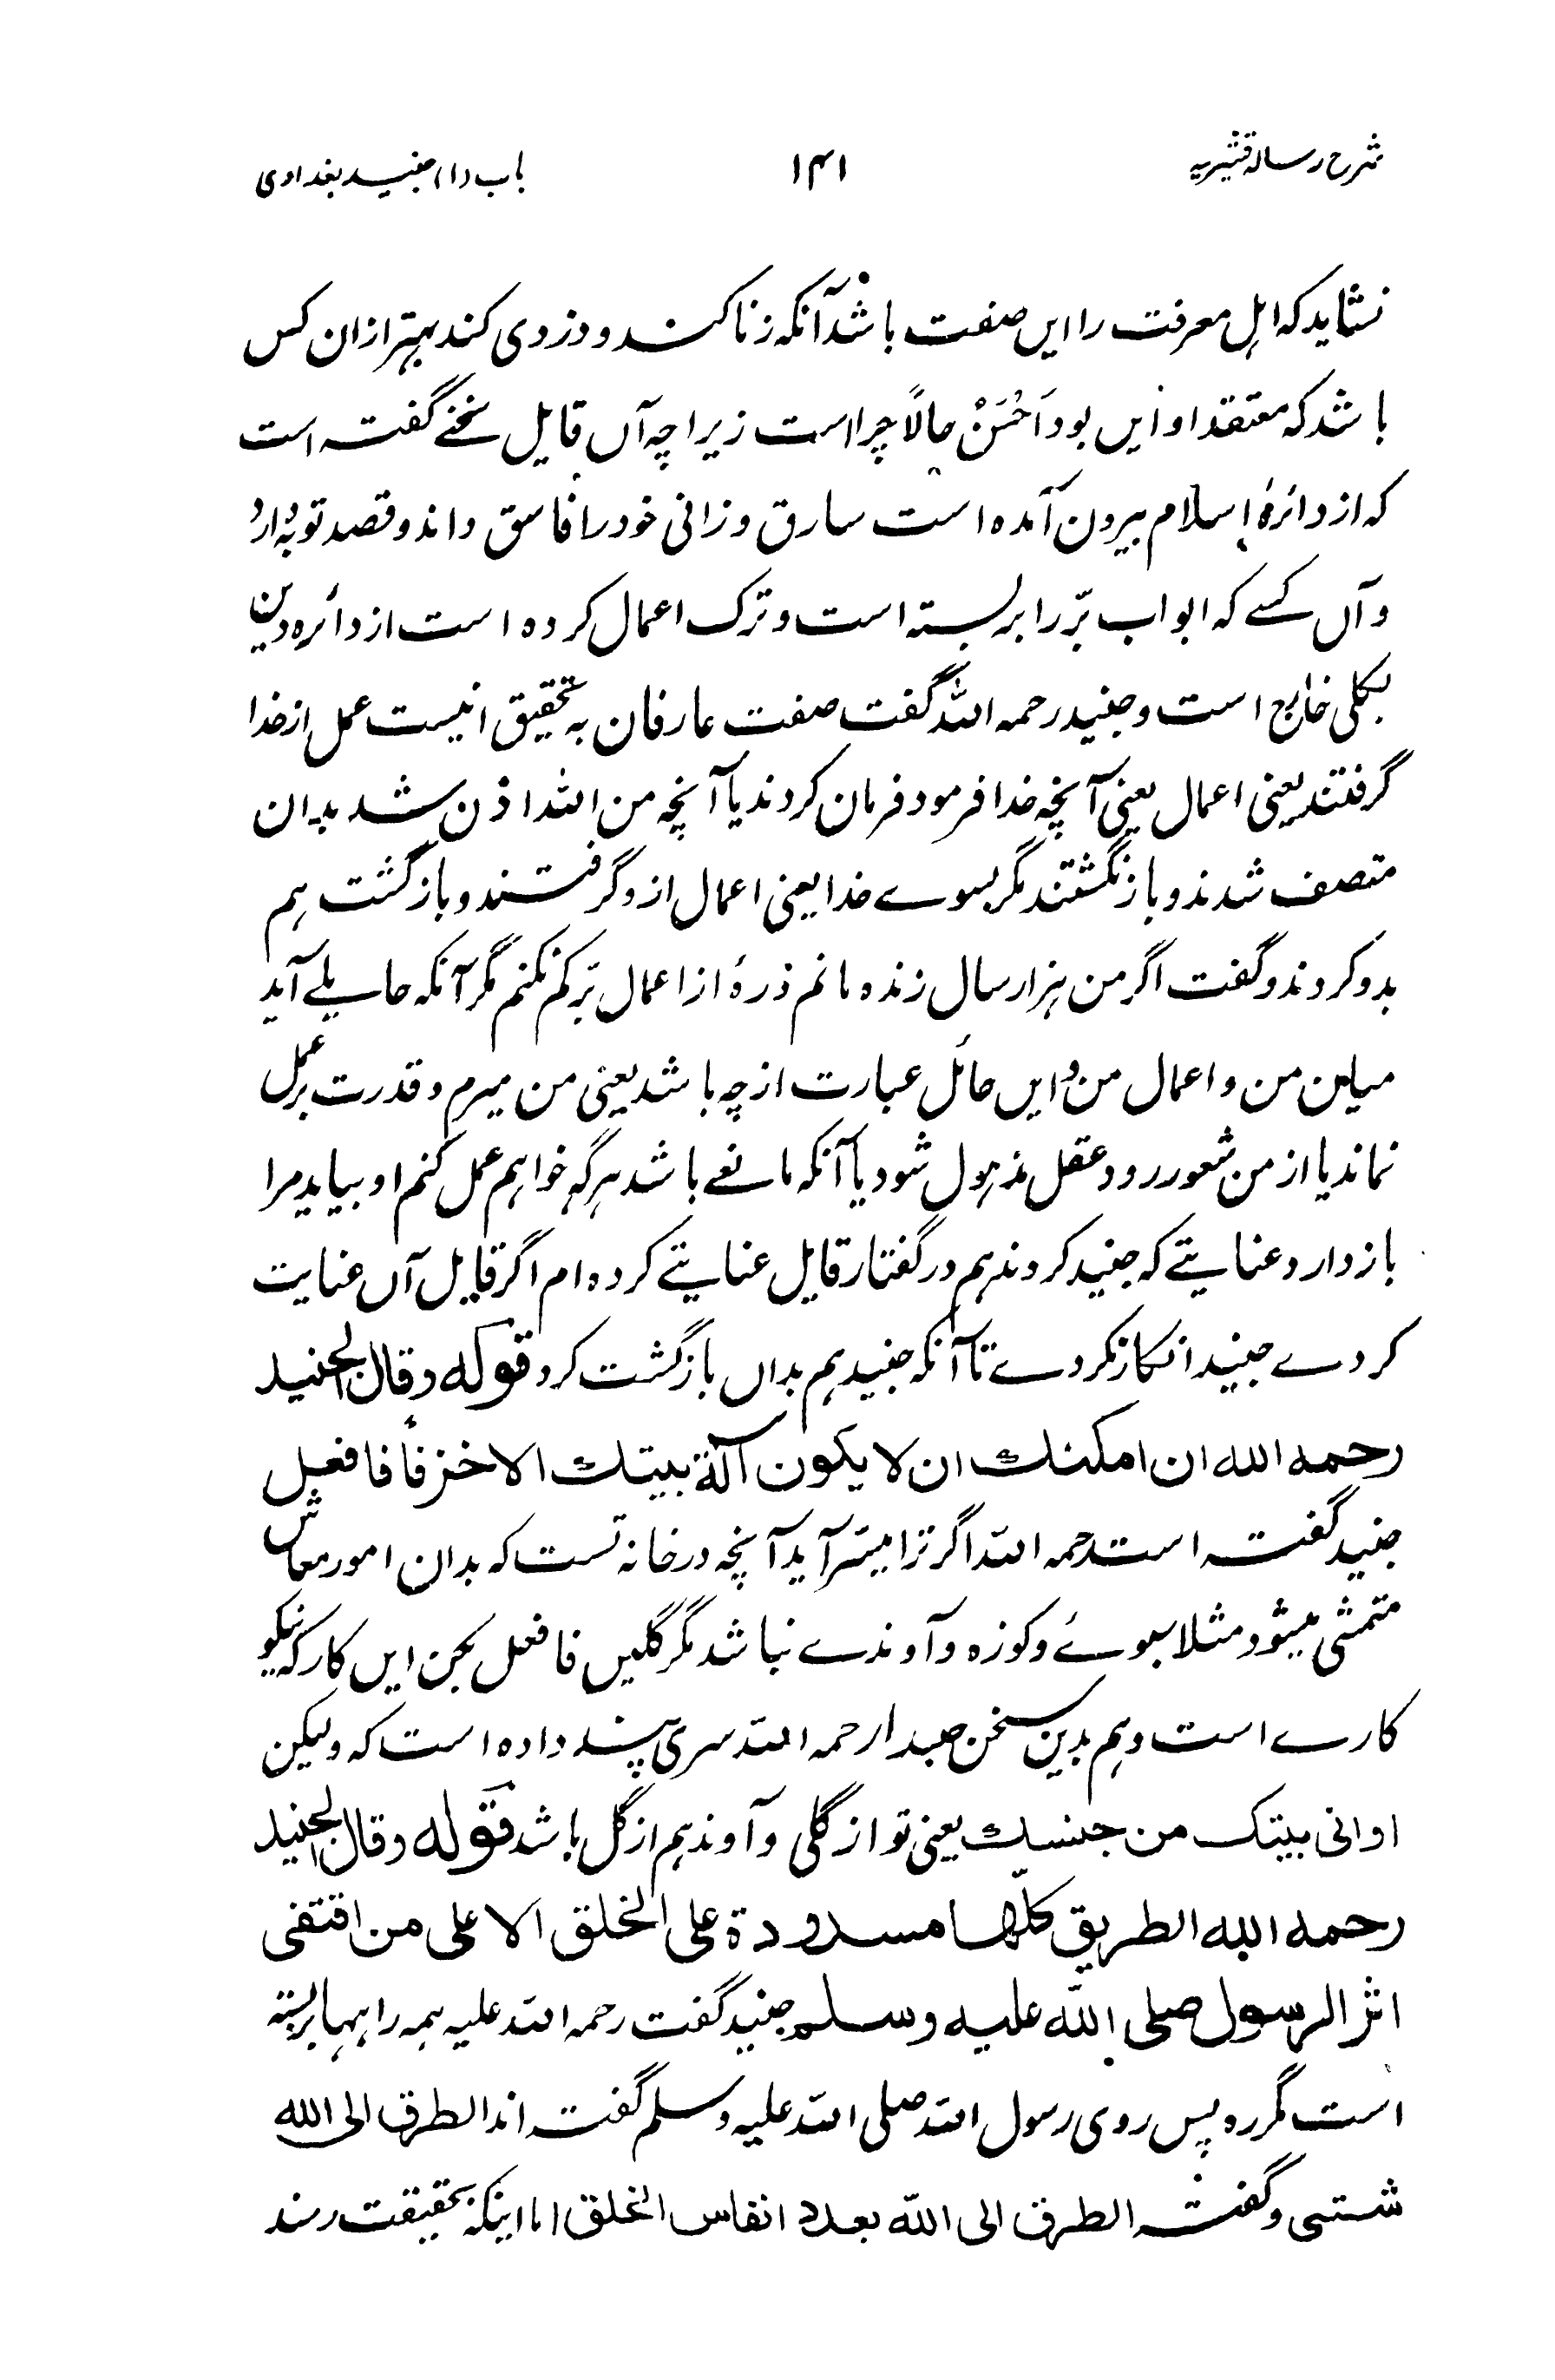 شرح رسالہ قشیریہ ۱۴۱ باب (۱) جنید بغدادی
نشاید کہ اہل معرفت را ایں صفت باشد آنکہ زنا کند و دزدی کند بہتر ازان کس
باشد کہ معتقد او ایں بود اَحْسَنُ حالًا چرا است زیراچہ آں قایل سخنے گفتہ است
کہ از دائرۂ اسلام بیرون آمدہ است سارق و زانی خود را فاسق داند و قصد توبہ دارد
و آں کسے کہ ابواب برّ را بر بستہ است و ترک اعمال کردہ است از دائرہ دین
بکلی خارج است و جنید رحمہ اللہ گفت صفت عارفان بہ تحقیق انیست عمل از خدا
گرفتند یعنی اعمال یعنی آنچہ خدا فرمود فرمان کردند یا آنچہ من اللہ اذن شد بدان
متصف شدند و باز نگشتند مگر بسوے خدا یعنی اعمال ازو گرفتند و بازگشت ہم
بدو کردند و گفت اگر من ہزار سال زندہ مانم ذرۂ از اعمال برّ کم نکنم مگر آنکہ حایلے آید
میان من و اعمال من و ایں حائل عبارت از چہ باشد یعنی من میرم و قدرت بر عمل
نماند یا از من شعور رود عقل مذہول شود یا آنکہ مانعے باشد ہرگہ خواہم عمل کنم او بیاید مرا
باز دارد عنایتے کہ جنید کردند ہم در گفتار قایل عنایتے کردہ ام اگر قایل آں عنایت
کردے جنید انکار نکردے تا آنکہ جنید ہم بداں بازگشت کرد قولہ وقال الجنید
رحمہ اللہ ان امکنك ان لا یکون آلة بیتك الا خزفاً فافعل
جنید گفتہ است رحمہ اللہ اگر ترا میسّر آید آنچہ در خانہ تست کہ بدان امور معاش
متمشی میشود مثلا سبوے و کوزہ و آوندے نباشد مگر گلیں فافعل بکن ایں کار کہ نیکو
کارے است و ہم بدین سخن رحمہ اللہ سری پند دادہ است کہ ولیکن
اوانی بیتک من جنسك یعنی تو از گلی و آوند ہم از گل باشد قولہ وقال الجنید
رحمہ اللہ الطریق کلّھا مسدودة علی الخلق الا علی من اقتفی
اثر الرسول صلی اللہ علیہ وسلم جنید گفت رحمہ اللہ علیہ ہمہ راہہا بربستہ
است مگر رہ پس روی رسول اللہ صلی اللہ علیہ وسلم گفتہ اند الطرق الی اللہ
شتی و گفتہ الطرق الی اللہ بعدد انفاس الخلق اما اینکہ بحقیقت رسند